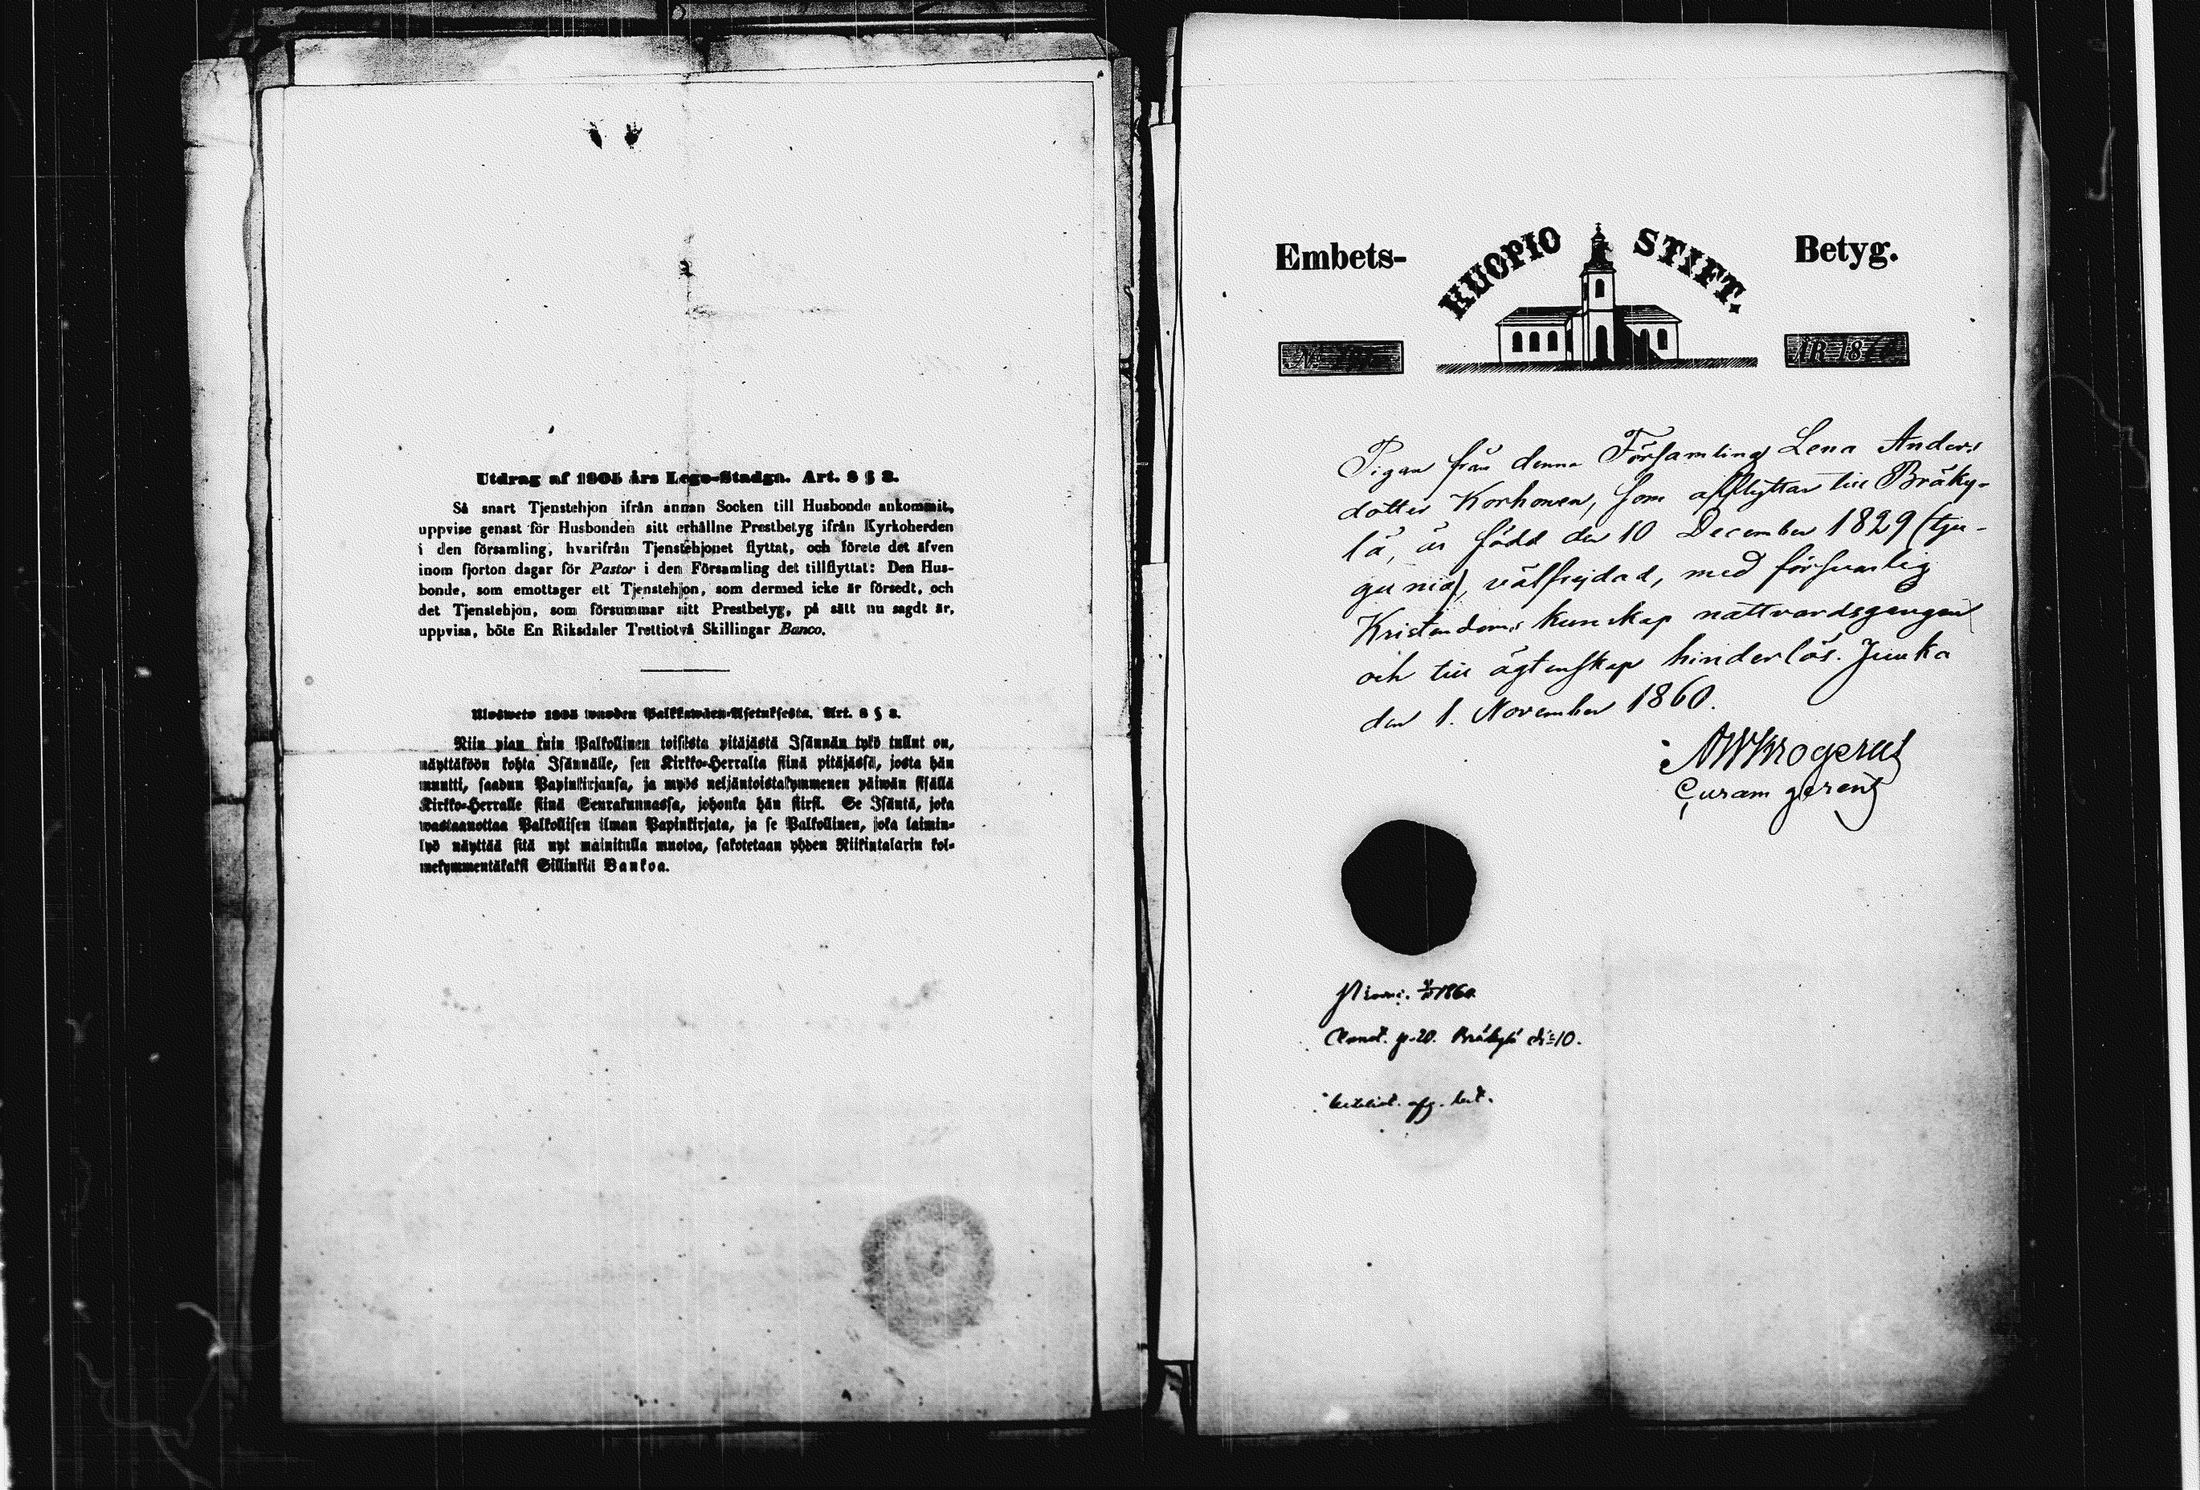 Utdrag af 1805 års Lego-Stadga. Art. 8 § 8.
Så snart Tjenstehjon ifrån annan Socken till Husbonde ankommit,
uppvise genast för Husbonden sitt erhållne Prestbetyg ifrån Kyrkoherden
i den församling, hvarifrån Tjenstehjonet flyttat, och förete det äfven
inom fjorton dagar för Pastor i den Församling det tillflyttat: Den Hus-
bonde, som emottager ett Tjenstehjon, som dermed icke är försedt, och
det Tjenstehjon, som försummar sitt Prestbetyg, på sätt nu sagdt är,
uppvisa, böte En Riksdaler Trettiotvå Skillingar Banco.
Ulosweto 1805 wuoden Palkkawäen-Asetuksesta. Art. 8 § 8.
Niin pian kuin Palkollinen toisesta pitäjästä Isännän tykö tullut on,
näyttäköön kohta Isännälle, sen Kirkko-Herralta siinä pitäjässä, josta hän
muutti, saadun Papinkirjansa, ja myös neljäntoistakymmenen päiwän sisällä
Kirkko-Herralle siinä Seurakunnassa, johonka hän siirsi. Se Isäntä, joka
wastaanottaa Palkollisen ilman Papinkirjata, ja se Palkollinen, joka laimin-
lyö näyttää sitä nyt mainitulla muotoa, sakotetaan yhden Riikintalarin kol-
mekymmentäkaksi Sillinkiä Bankoa.
Embets- KUOPIO STIFT. Betyg.
N:o ÅR 18
Pigan från denna Församling Lena Anders
dotter Korhonen, som afflyttar till Bräky-
lä, är född den 10 December 1829 (tju-
gu nio), välfrejdad, med försvarlig
Kristendoms kunskap nattvardsgången
och till ägtenskap hinderlös. Juuka
den 1. November 1860.
AWKrogerus
Curam gerens
1860
p. 20. Bräkylä 10.
afg. bet.